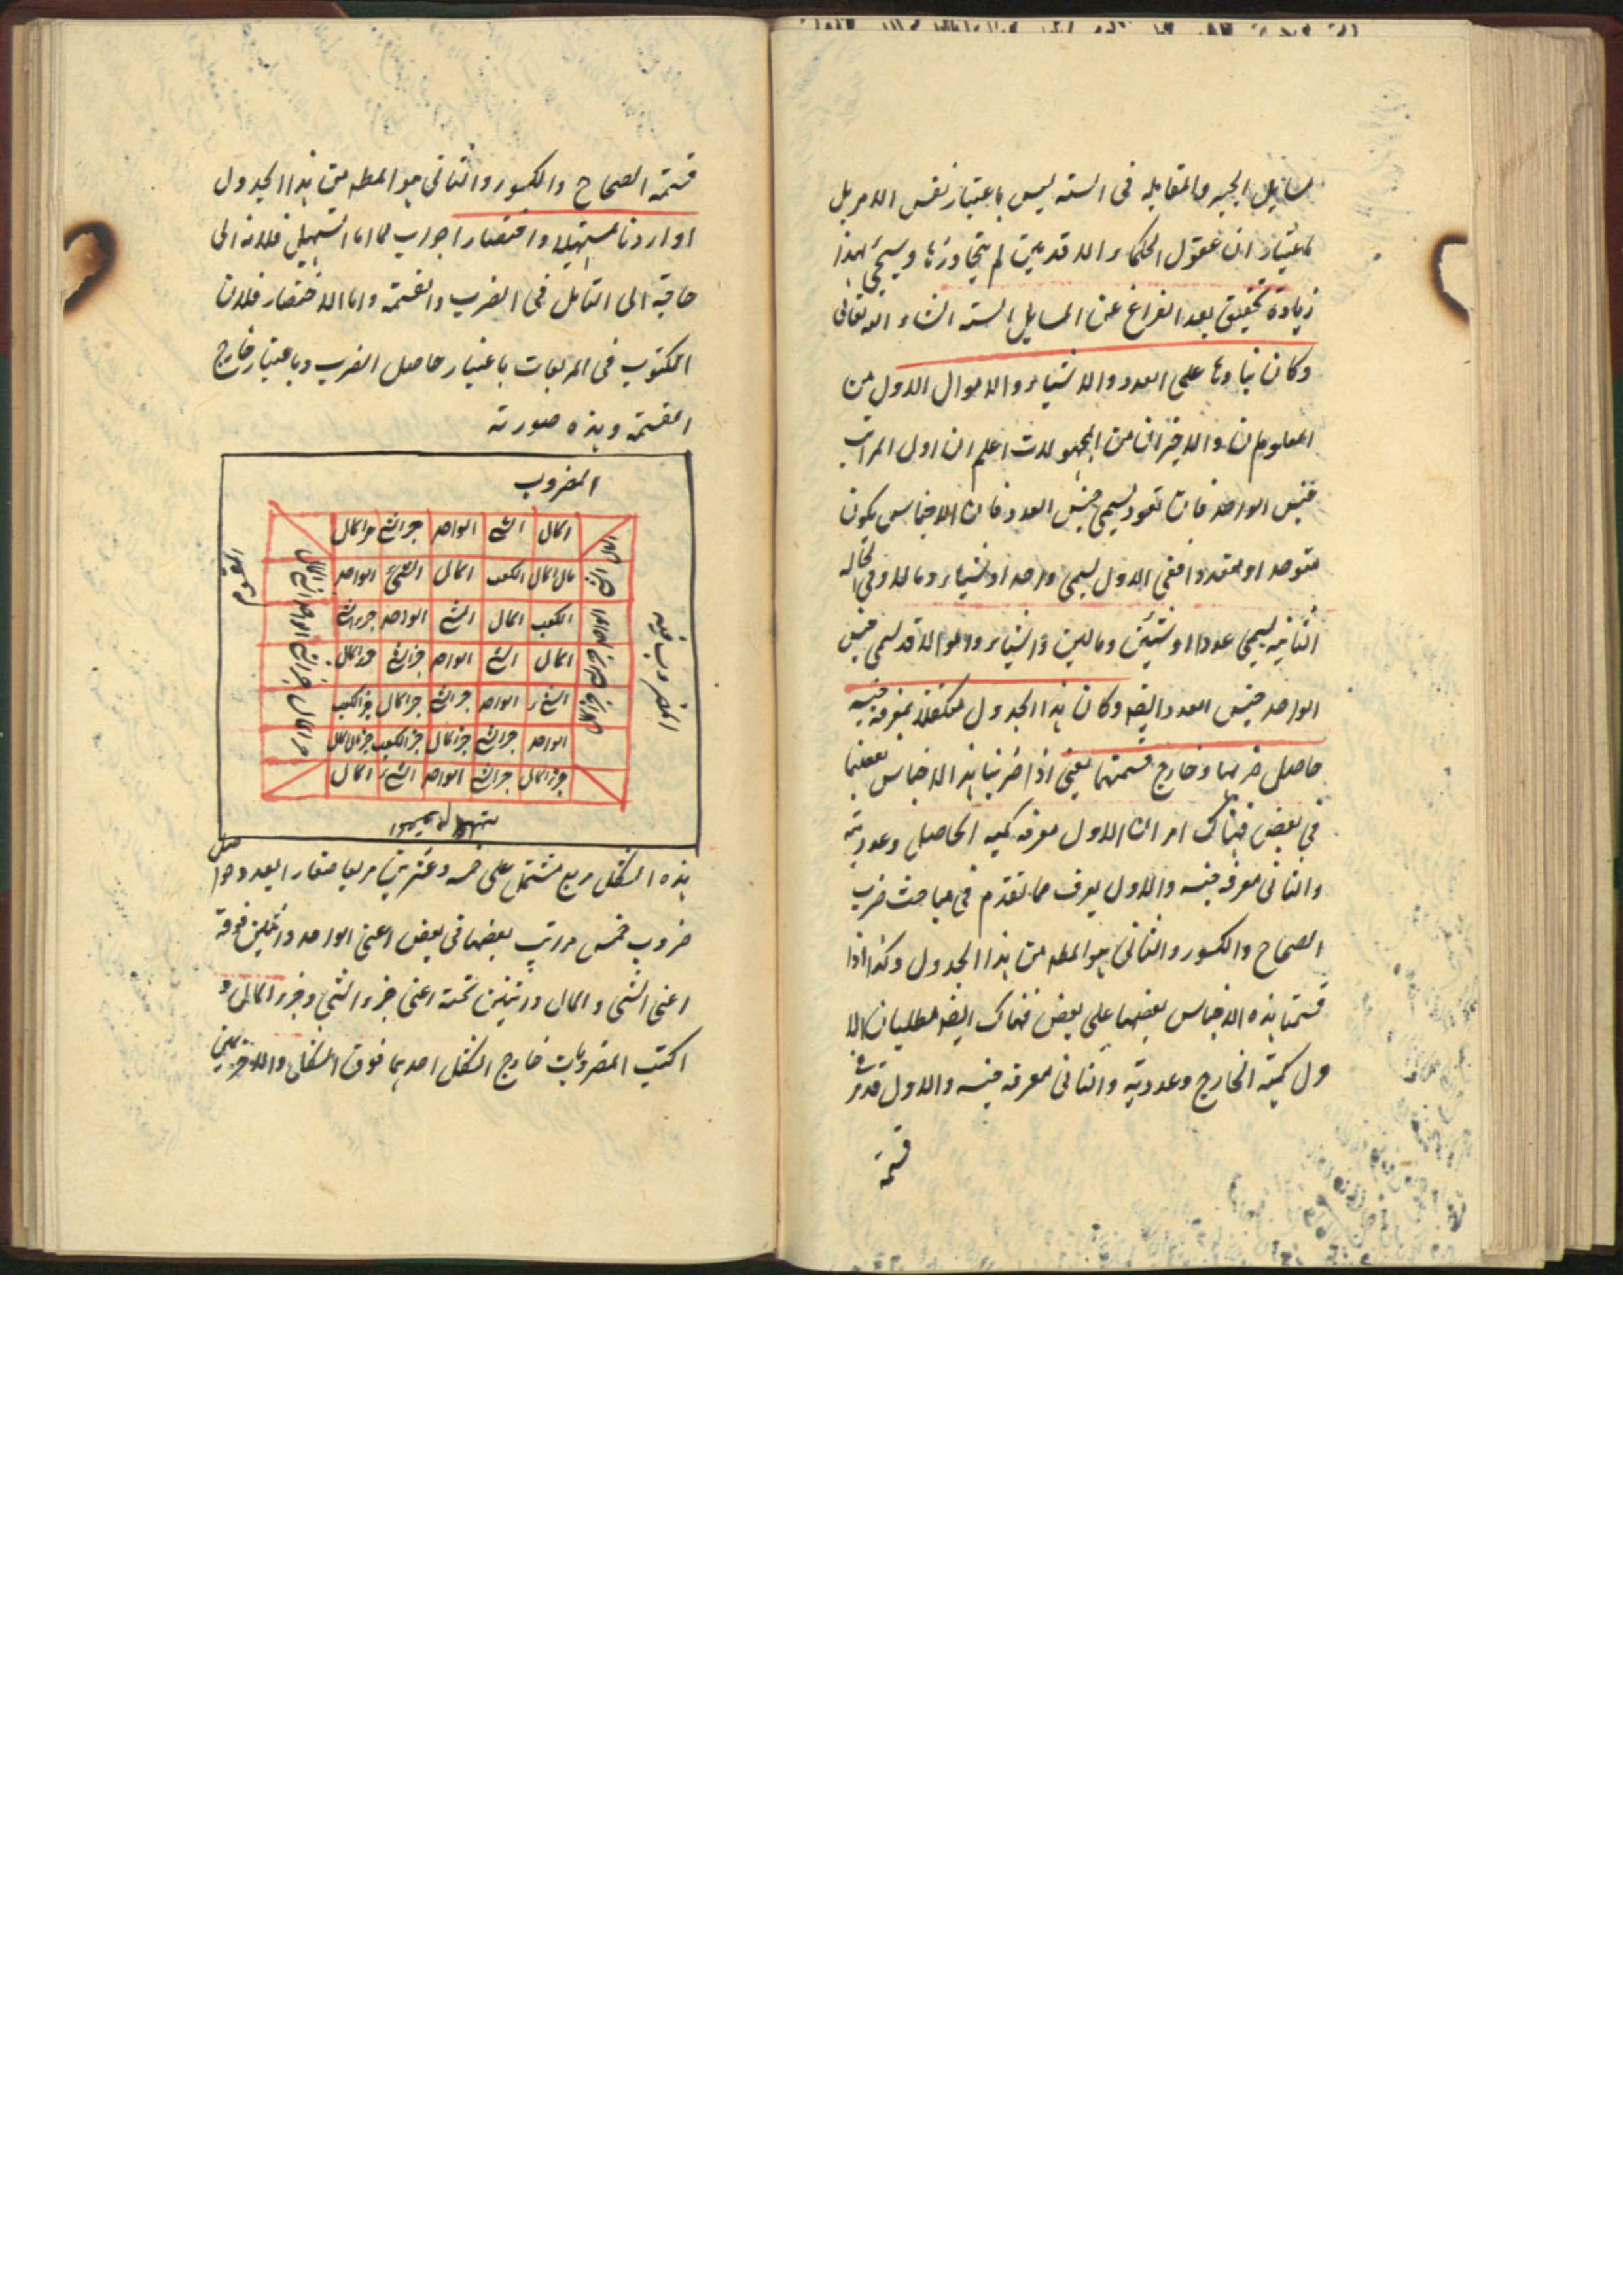 مسايل الجبر والمقابله فى السته ليس باعتبار نفس الامر بل
باعتبار ان عقول الحكماء الاقدمين لم يتجاوزها وسيجئ لهذا
زيادة تحقيق بعد الفراغ عن المسايل السته انشاء الله تعالى
وكان بناؤها على العدد والاشياء والاموال الاول من
المعلومات والاخيران من المجهولات اعلم ان اول المراتب
جنس الواحد فان تعود يسمى جنس العدد فان الاجناس يكون
متوحدا ومتعددا ففى الاول يسمى واحدا وشياء ومالا وفى الحالة
الثانيه يسمى عددا او شيئين ومالين واشياء واموالا قد يسمى جنس
الواحد جنس العدد ايضه وكان هذا الجدول متكفلا بمعرفة جنسية
حاصل ضربها وخارج قسمتها يعنى اذا ضربنا هذه الاجناس بعضها
فى بعض فهناك امران الاول معرفه كميه الحاصل وعدديته
والثانى معرفه جنسه والاول يعرف مما تقدم فى مباحث ضرب
الصحاح والكسور والثانى هو المطه من هذا الجدول وكذا اذا
قسمنا هذه الاجناس بعضها على بعض فهناك ايضه مطلبان الا
ول كمية الخارج وعدديته والثانى معرفه جنسه والاول قد مر فى
قسمة
قسمة الصحاح والكسور والثانى هو المطه من هذا الجدول
اوردنا تسهيلا واختصارا جواب لما اما التسهيل فلانه الى
حاجة الى التامل فى الضرب والقسمة واما الاختصار فلان
المكتوب فى المربعات باعتبار حاصل الضرب وباعتبار خارج
القسمة وهذه صورته
المضروب
المال الشئ الواحد جزالشئ جزالمال
مال المال الكعب المال الشئ الواحد
الكعب المال الشئ الواحد جزءالشئ
المال الشئ الواحد جزالشئ جزالمال
الشئ الواحد جزالشئ جزالمال جزالكعب
الواحد جزالشئ جزالمال جزالكعب جزمال المال
جزالمال جزالشئ الواحد الشئ المال
المضروب فيه
المقسوم
المقسوم عليه
هذه الشكل مربع مشتمل على خمسه وعشرين مربعا صغار العدد حواصل
ضروب خمس مراتب بعضها فى بعض اعنى الواحد واثنين فوقه
اعنى الشئ والمال واثنين تحته اعنى جزء الشئ وجزء المال و
اكتب المضروبات خارج الشكل احدهما فوق الشكل والاخر يمين